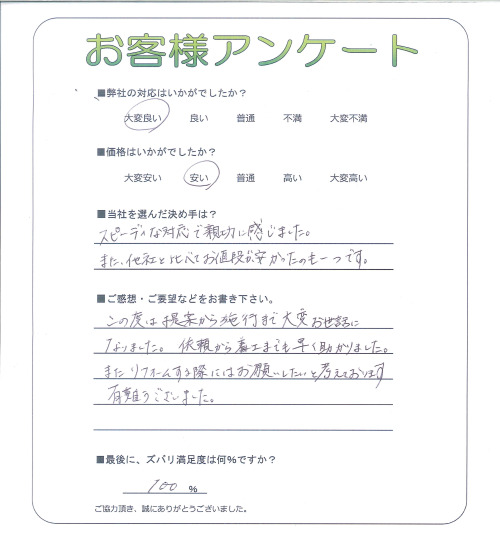 お客様アンケート
■弊社の対応はいかがでしたか？
大変良い 良い 普通 不満 大変不満
■価格はいかがでしたか？
大変安い 安い 普通 高い 大変高い
■当社を選んだ決め手は？
スピーディな対応で親切に感じました。
また、他社と比べてお値段が安かったのも一つです。
■ご感想・ご要望などをお書き下さい。
この度は提案から施行まで大変お世話に
なりました。依頼から着工までも早く助かりました。
またリフォームする際にはお願いしたいと考えております
有難うございました。
■最後に、ズバリ満足度は何％ですか？
100 %
ご協力頂き、誠にありがとうございました。